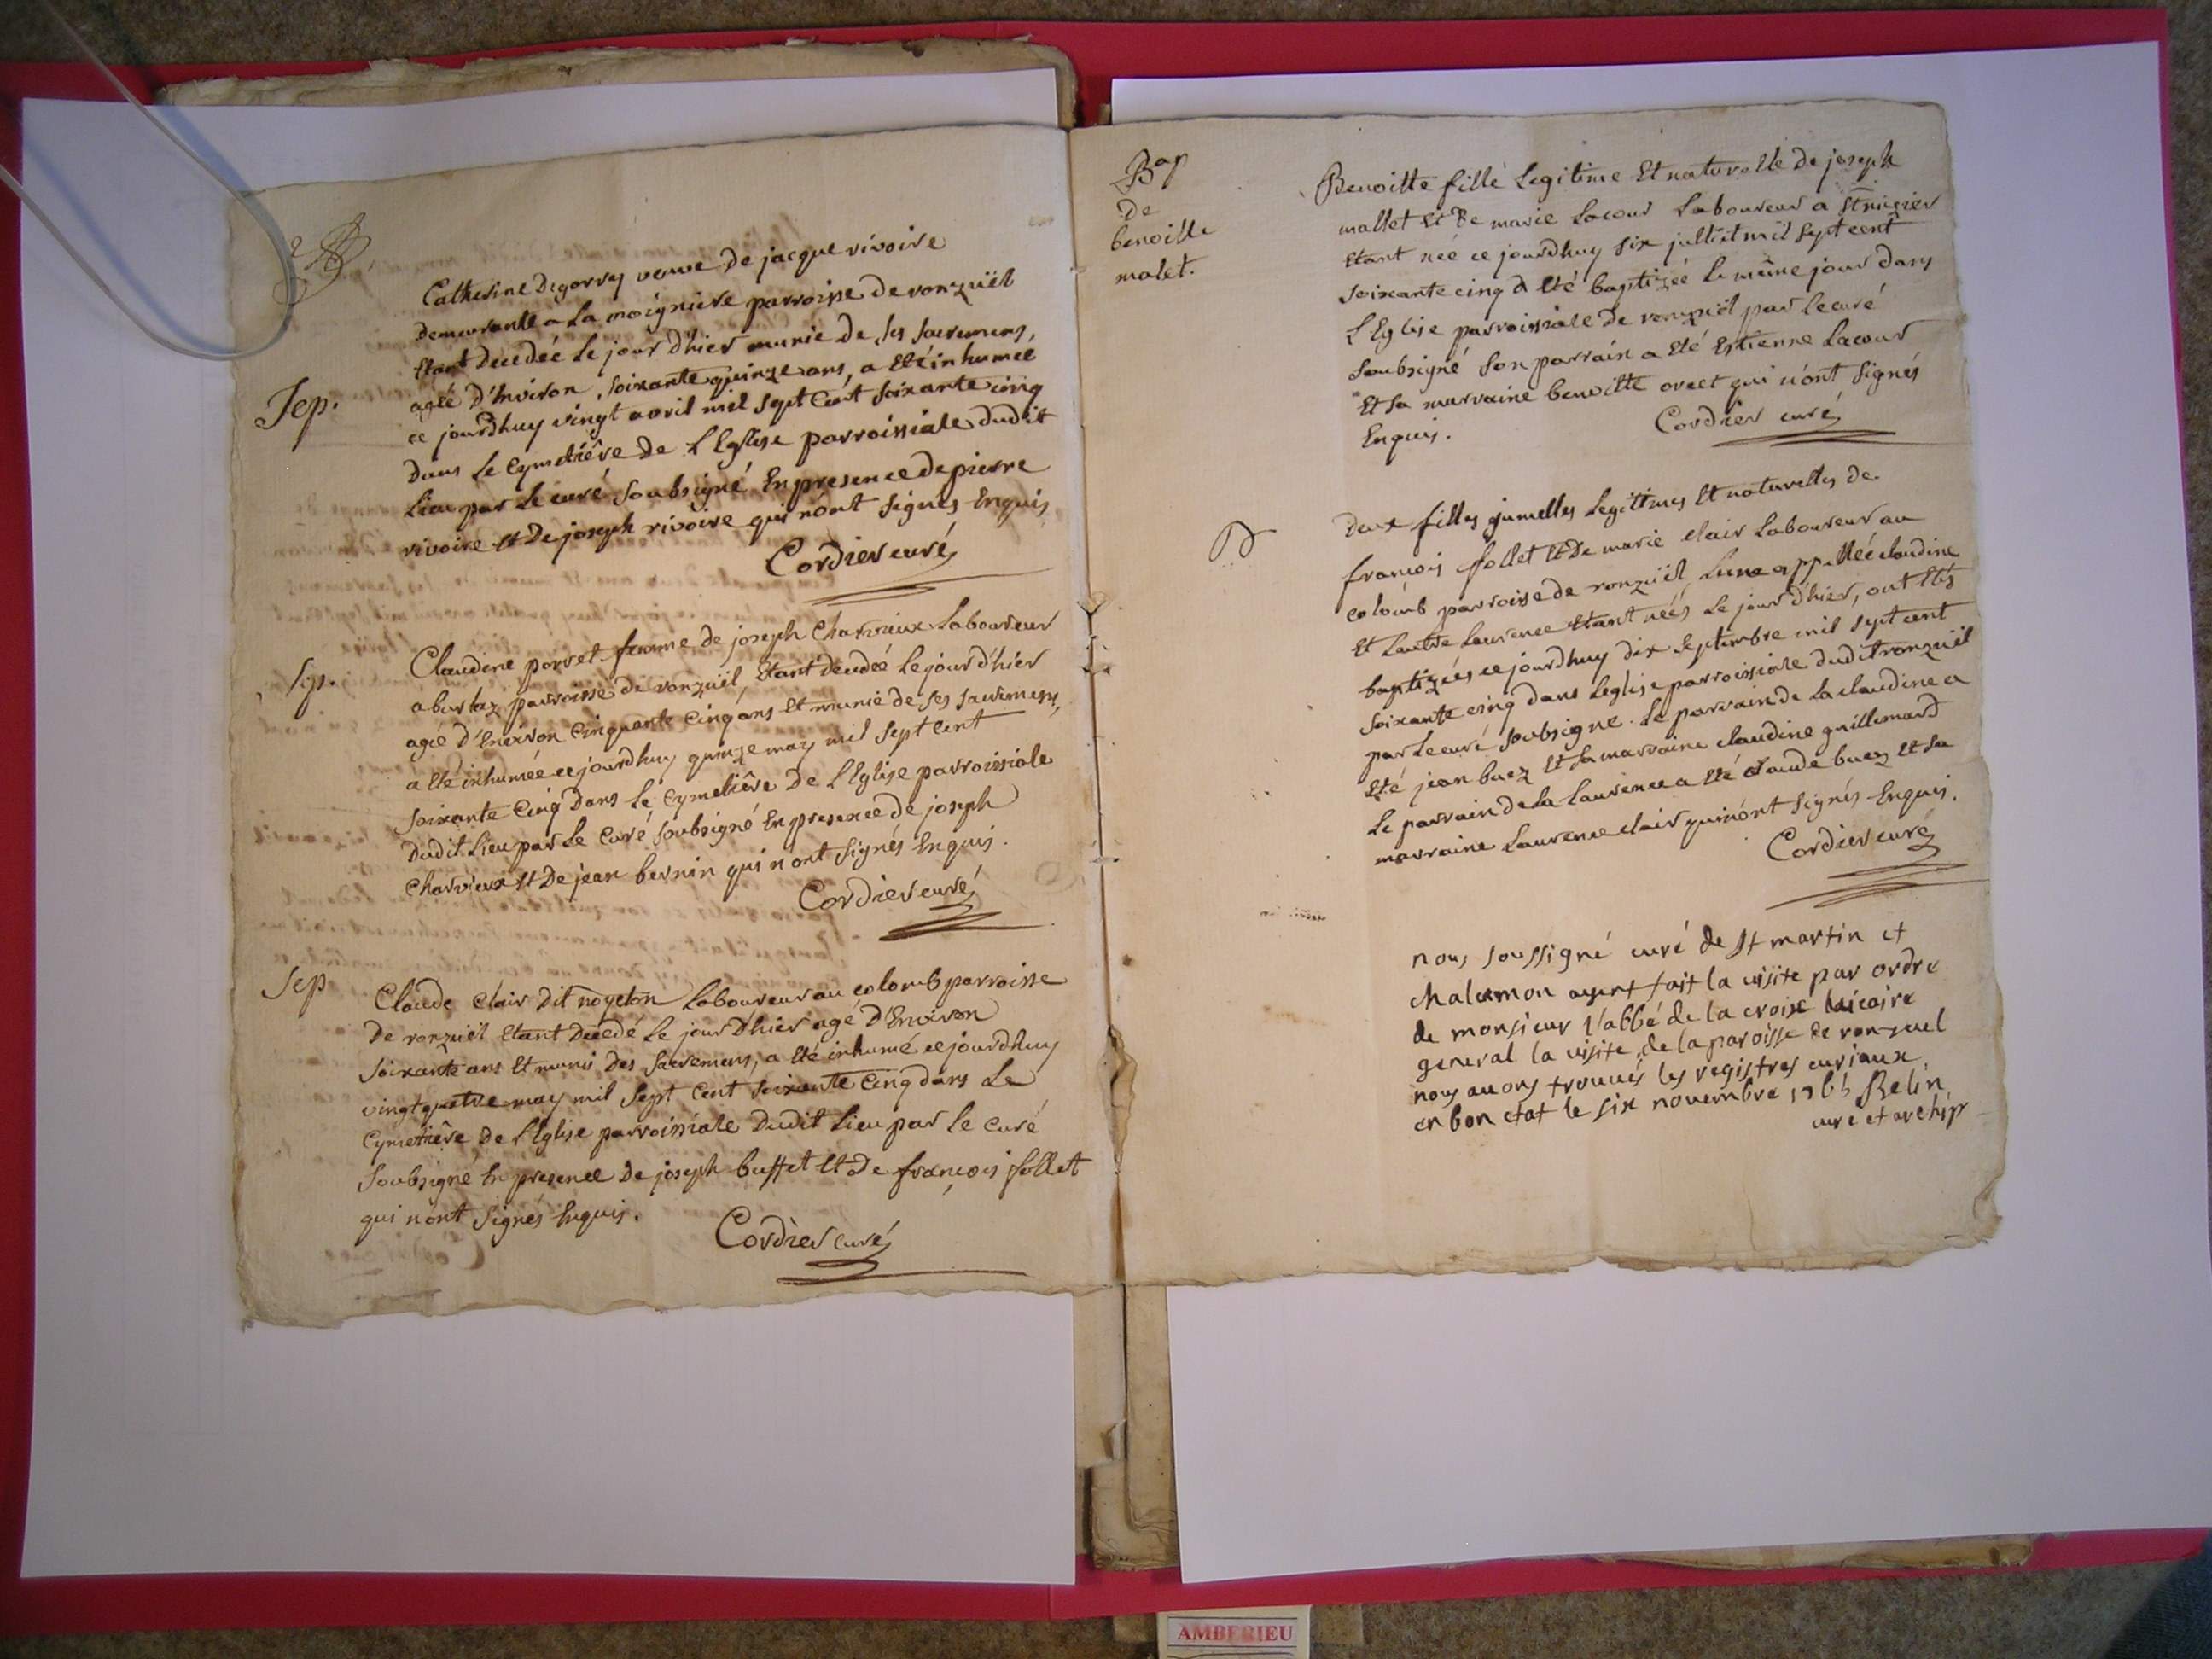 Sep.
Catherine Degorrey veuve de jacque rivoire
demeurante a La moigniere parroisse de ronzuël
Etant decedeé Le jour d'hier munie de ses sacremens,
ageé d'Environ soixante quinze ans, a Eté inhumeé
ce jourdhuy vingt avril mil sept Cent soixante cinq
dans Le Cymetiêre de L'Eglise parroissiale dudit
Lieu par Le curé soubsigné En presence de pierre
rivoire Et de joseph rivoire qui n'ont signés Enquis
Cordier curé
Sep.
Claudine porret femme de joseph Charvieux Laboureur
a burlaz parroisse de ronzuël, Etant decedeé Le jour d'hier
ageé d'Environ Cinquante Cinq ans Et munie de ses sacremens,
a Eté inhumée ce jourdhuy quinze may mil sept Cent
soixante Cinq dans Le Cymetiêre de L'Eglise parroissiale
dudit Lieu par Le Curé soubsigné En presence de joseph
Charvieux Et De jean bernin qui n'ont signés Enquis.
Cordier curé
Sep
Claude Clair dit noyeton Laboureur au colomb parroisse
de ronzuël Etant Decedé Le jour d'hier agé d'Environ
soixante ans Et munis des sacremens, a Eté inhumé ce jourdhuy
vingt quatre may mil sept Cent soixante Cinq dans Le
Cymetiêre de L'Eglise parroissiale Dudit Lieu par Le Curé
soubsigné En presence de joseph buffet Et de françois follet
qui n'ont signés Enquis.
Cordier curé
Bap
de
benoitte
malet.
Benoitte fille Legitime Et naturelle de joseph
mallet Et De marie Lacour Laboureur a St nizier
Etant neé ce jourdhuy six julliet mil sept cent
soixante cinq a Eté baptizeé Le même jour dans
L'Eglise parroissiale de ronzuël par Le curé
soubsigné son parrain a Eté Estienne Lacour
Et sa marraine benoitte ovect qui n'ont signés
Enquis.
Cordier curé
B
Deux filles jumelles Legitimes Et naturelles de
françois follet Et De marie Clair Laboureur au
colomb parroisse de ronzuël L'une appelleé claudine
Et L'autre Laurence Etant neés Le jour d'hier, ont Etés
baptizeés ce jourdhuy dix septembre mil sept cent
soixante cinq dans L'eglise parroissiale dudit ronzuël
par Le curé soubsigné. Le parrain de La claudine a
Eté jean buez Et sa marraine claudine guillemard
Le parrain de La Laurence a Eté Claude buez Et sa
marraine Laurence clair qui n'ont signés Enquis.
Cordier curé
nous soussigné curé de St martin et
chalamon ayant fait la visite par ordre
de monsieur l'abbé de la croix vicaire
general la visite de la paroisse de ronzuel
nous avons trouvés les registres curiaux
en bon etat le six novembre 1765 Relin
curé et archip
AMBERIEU